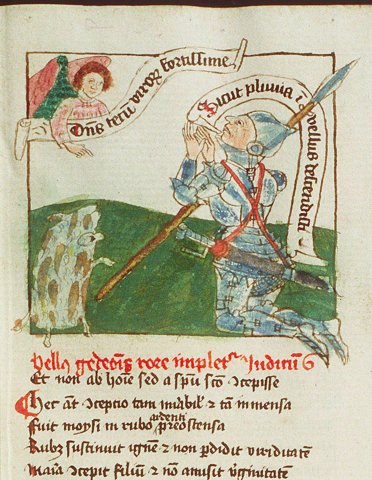 Dns tecū viroꝝ fortissime
Sicut pluuia ī vellus descendisti
Vellus gedeōis rore implet^r Iudicū 6
Et non ab hoīe sed a spū scō ↄcepisse
Hec aūt ↄcepcio tam mirabil' & tā inmensa
Fuit moysi in rubo ardenti preostensa
Rubꝰ sustinuit ignē & non perdidit viriditatē
Maria ↄcepit filiū & nō amisit v'ginitatē